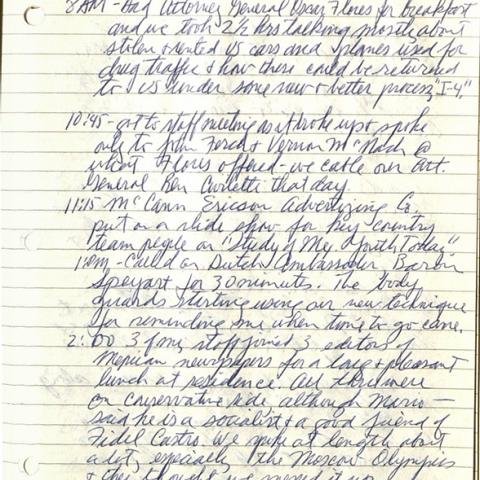 8 AM - Had Attorney General Oscar Flores for breakfast
and we took 2½ hrs talking mostly about
stolen & rented US cars and planes used for
drug traffic & how these could be returned
to us under some new & better process, "I-4."
10:45 - got to staff meeting as it broke up & spoke
only to John Ferch & Vernon McAninch @
what Flores offered - we cable our Att.
General Ben Civiletti that day.
11:15 McCann Ericson Advertizing Co.
put on a slide show for key country
team people on "Study of Mex. Youth Today".
1:00 pm - Called on Dutch Ambassador Baron
Speyart for 30 minutes. The body
guards starting using our new technique
for reminding me when time to go came.
2:00 3 of my staff joined 3 editors of
Mexican newspapers for a long & pleasant
lunch at residence. All three were
on conservative side, although Mario —
said he is a socialist & a good friend of
Fidel Castro. We spoke at length about
a lot, especially the Moscow Olympics
& they thought we messed it up